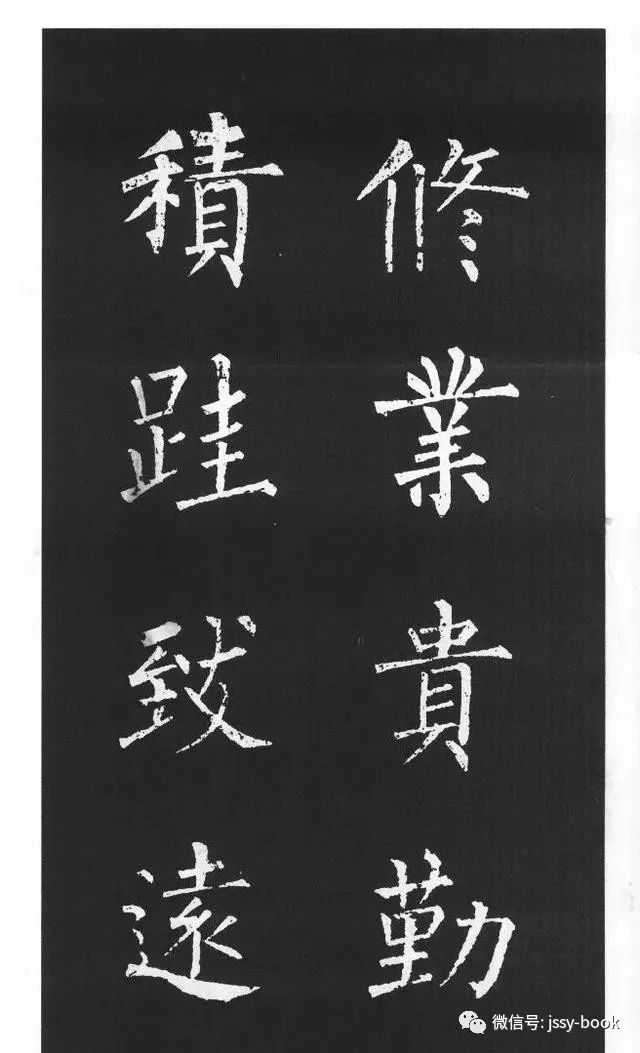 修業貴勤
積跬致遠
微信号: jssy-book